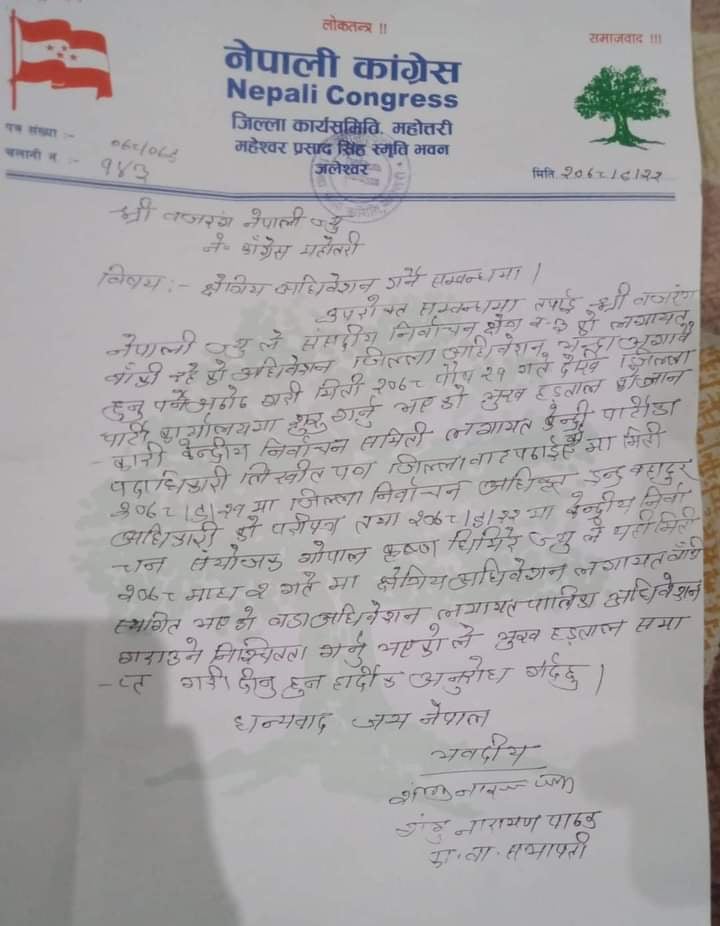 लोकतन्त्र !!
समाजवाद !!!
नेपाली कांग्रेस
Nepali Congress
जिल्ला कार्यसमिति, महोत्तरी
महेश्वर प्रसाद सिंह स्मृति भवन
जलेश्वर
पत्र संख्या :-
चलानी नं :- १४३
मिति २०७८।९।२२
श्री वजरंग नेपाली ज्यु
ने॰ काँग्रेस महोतरी
विषय :- क्षेत्रिय अधिवेशन गर्ने सम्बन्धमा ।
उपरोक्त सम्बन्धमा तपाई श्री वजरंग
नेपाली ज्यु ले संसदीय निर्वाचन क्षेत्र नं-३ को लगायत
बाँकी रहेको अधिवेशन जिल्ला अधिवेशन भन्दा अगावै
हुनु पर्ने गरी मिती २०७८ पौष २१ गते देखि जिल्ला
पार्टी कार्यालयमा शुरू गर्नु भएको भुख हडताल को जान
- कारी केन्द्रीय निर्वाचन समिती लगायत केन्द्री पार्टीका
पदाधिकारी लिखीत पत्र जिल्लाबाट पठाईएकोमा मिती
२०७८।९।२१ मा जिल्ला निर्वाचन अधिकृत इन्द्र बहादुर
अधिकारी को परीपत्र तथा २०७८।९।२२ मा केन्द्रीय निर्वा
चन संयोजक गोपाल कृष्ण घिमिरे ज्यु ले यही मिती
२०७८ माघ २ गते मा क्षेत्रिय अधिवेशन लगायत बाँकि
स्थगित भएको वडा अधिवेशन लगायत पालिका अधिवेशन
गराउने निश्चितता गर्नु भएकोले भुख हडताल समा
- प्त गरी दीनु हुन हार्दीक अनुरोध गर्दछु ।
धन्यवाद जय नेपाल
भवदीय
शंभु नारायण पाठक
का. वा. सभापती